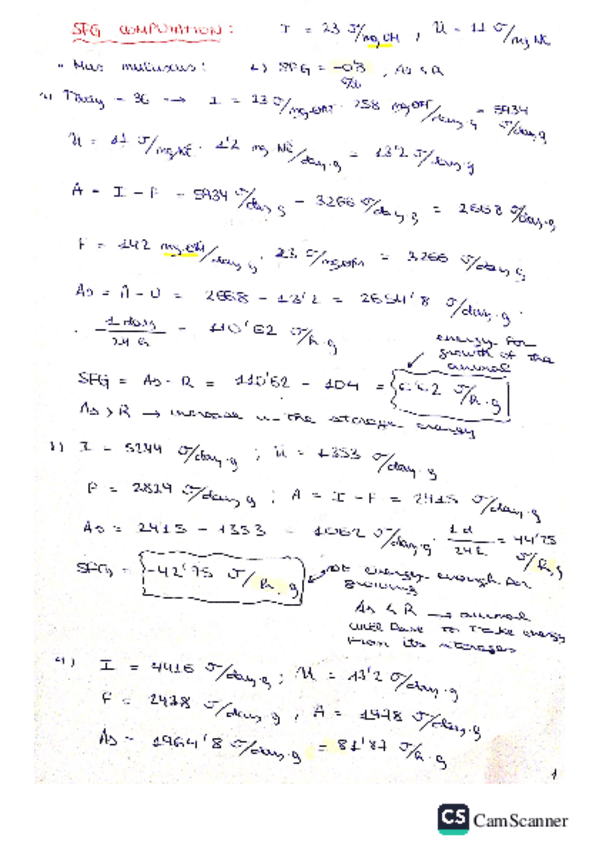 SFG COMPUTATION: I = 23 J/mg OM, U = 11 J/mg NE
• Mus musculus: 1) SFG = -0'8, As < R
2) I = 23 J/mg OM · 258 mg OM/day, g = 5934 J/day, g
U = 11 J/mg NE · 1'2 mg NE/day, g = 13'2 J/day, g
A = I - F = 5934 J/day, g - 3266 J/day, g = 2668 J/day, g
F = 142 mg OM/day, g · 23 J/mg OM = 3266 J/day, g
As = A - U = 2668 - 13'2 = 2654'8 J/day, g ·
· 1 day/24 h = 110'62 J/h, g
energy for
growth of the
animal
SFG = As - R = 110'62 - 104 = 6.62 J/h, g
As > R → increase in the storage energy
3) I = 5244 J/day, g; U = 1353 J/day, g
F = 2829 J/day, g; A = I - F = 2415 J/day, g
As = 2415 - 1353 = 1062 J/day, g · 1 d/24 h = 44'25 J/h, g
SFG = -42'75 J/h, g
not energy enough for
growing
As < R → animal
will have to take energy
from its storages
4) I = 4416 J/day, g; U = 13'2 J/day, g
F = 2438 J/day, g, A = 1978 J/day, g
As = 1964'8 J/day, g = 81'87 J/h, g
1
CS CamScanner